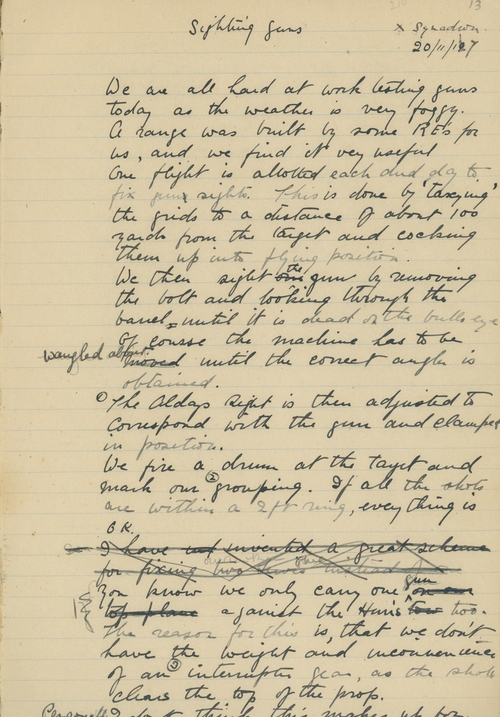 13
Sighting Guns
X Squadron
20/11/17
We are all hard at work testing guns
today as the weather is very foggy.
A range was built by some REs for
us, and we find it very useful
One flight is allotted each dud day to
fix guns sights. This is done by 'taxying'
the grids to a distance of about 100
yards from the target and cocking
them up into flying position.
We then sight the gun by removing
the bolt and looking through the
barrel, until it is dead on the bulls eye
Of course the machine has to be
wangled about moved until the correct angle is
obtained.
① The Aldays sight is then adjusted to
correspond with the gun and clamped
in position.
We fire a drum at the target and
mark our ② grouping. If all the shots
are within a 2ft ring, everything is
OK.
I have not invented a great scheme
for fixing two guns instead
You know we only carry one gun
top plane against the Huns two too.
The reason for this is, that we don't
have the weight and inconvenience
of an ③ interrupter gear, as the shots
clears the top of the prop.
Personally I don't think this makes up for